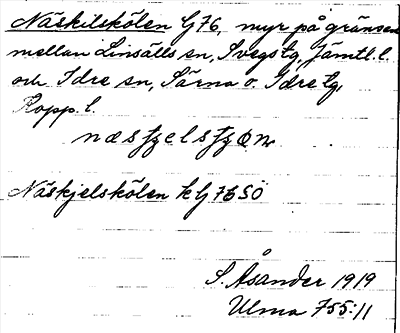 Näskilskölen G 76, myr på gränsen
mellan Linsälls sn, Svegs tg, Jämtl. l.
och Idre sn, Särna o. Idre tg,
Kopp. l.
Näskjelskölen k G 76 SÖ
S. Åsander 1919
Ulma 755:11